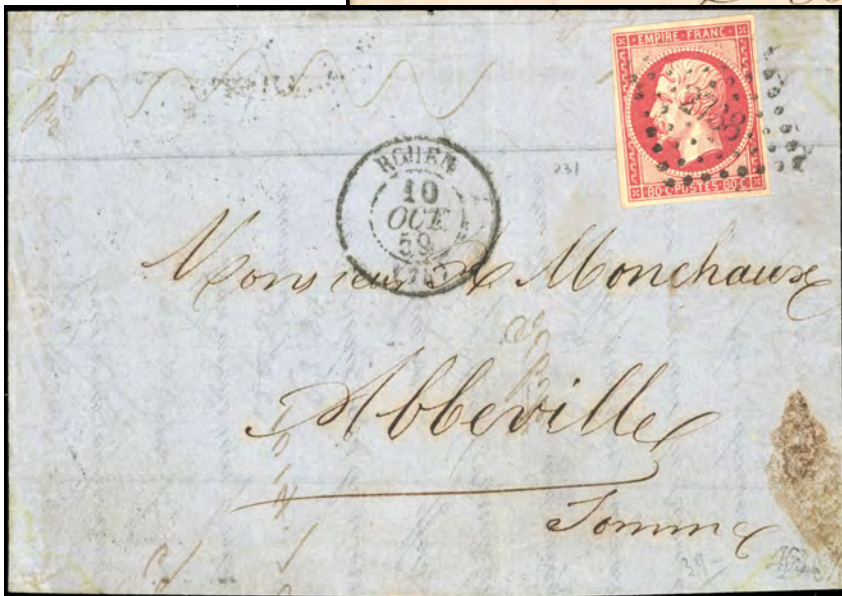 EMPIRE FRANC
2738
80 C POSTES 80 C
ROUEN
10
OCT.
59
231
Monsieur A Monchaux
Abbeville
Somme